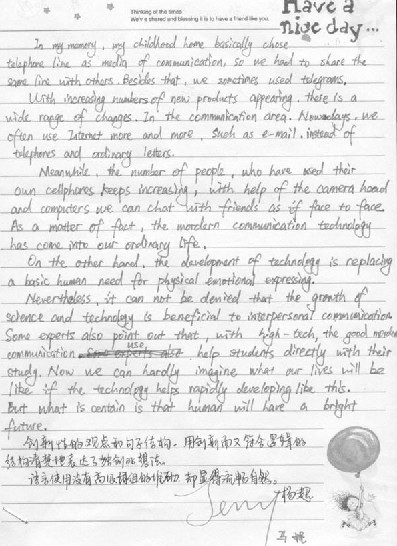 Thinking of the times
We've shared and blessing it is to have a friend like you.
Have a
nice day...
In my memory, my childhood home basically chose
telephone line as media of communication, so we had to share the
same line with others. Besides that, we sometimes used telegrams.
With increasing numbers of new products appearing, there is a
wide range of changes. In the communication area. Nowadays, we
often use Internet more and more, such as e-mail, instead of
telephones and ordinary letters.
Meanwhile, the number of people, who have used their
own cellphones keeps increasing, with help of the camera head
and computers we can chat with friends as if face to face.
As a matter of fact, the mordern communication technology
has come into our ordinary life.
On the other hand, the development of technology is replacing
a basic human need for physical emotional expressing.
Nevertheless, it can not be denied that the growth of
science and technology is beneficial to interpersonal communication.
Some experts also point out that, with high-tech, the good mordern
communication use help students directly with their
study. Now we can hardly imagine what our lives will be
like if the technology helps rapidly developing like this.
But what is certain is that human will have a bright
future.
创新性的观点和句子结构，用创新而又符合逻辑的
结构清楚地表达了独创的想法。
该文使用没有 都显得流畅自然。
Jenny 杨超